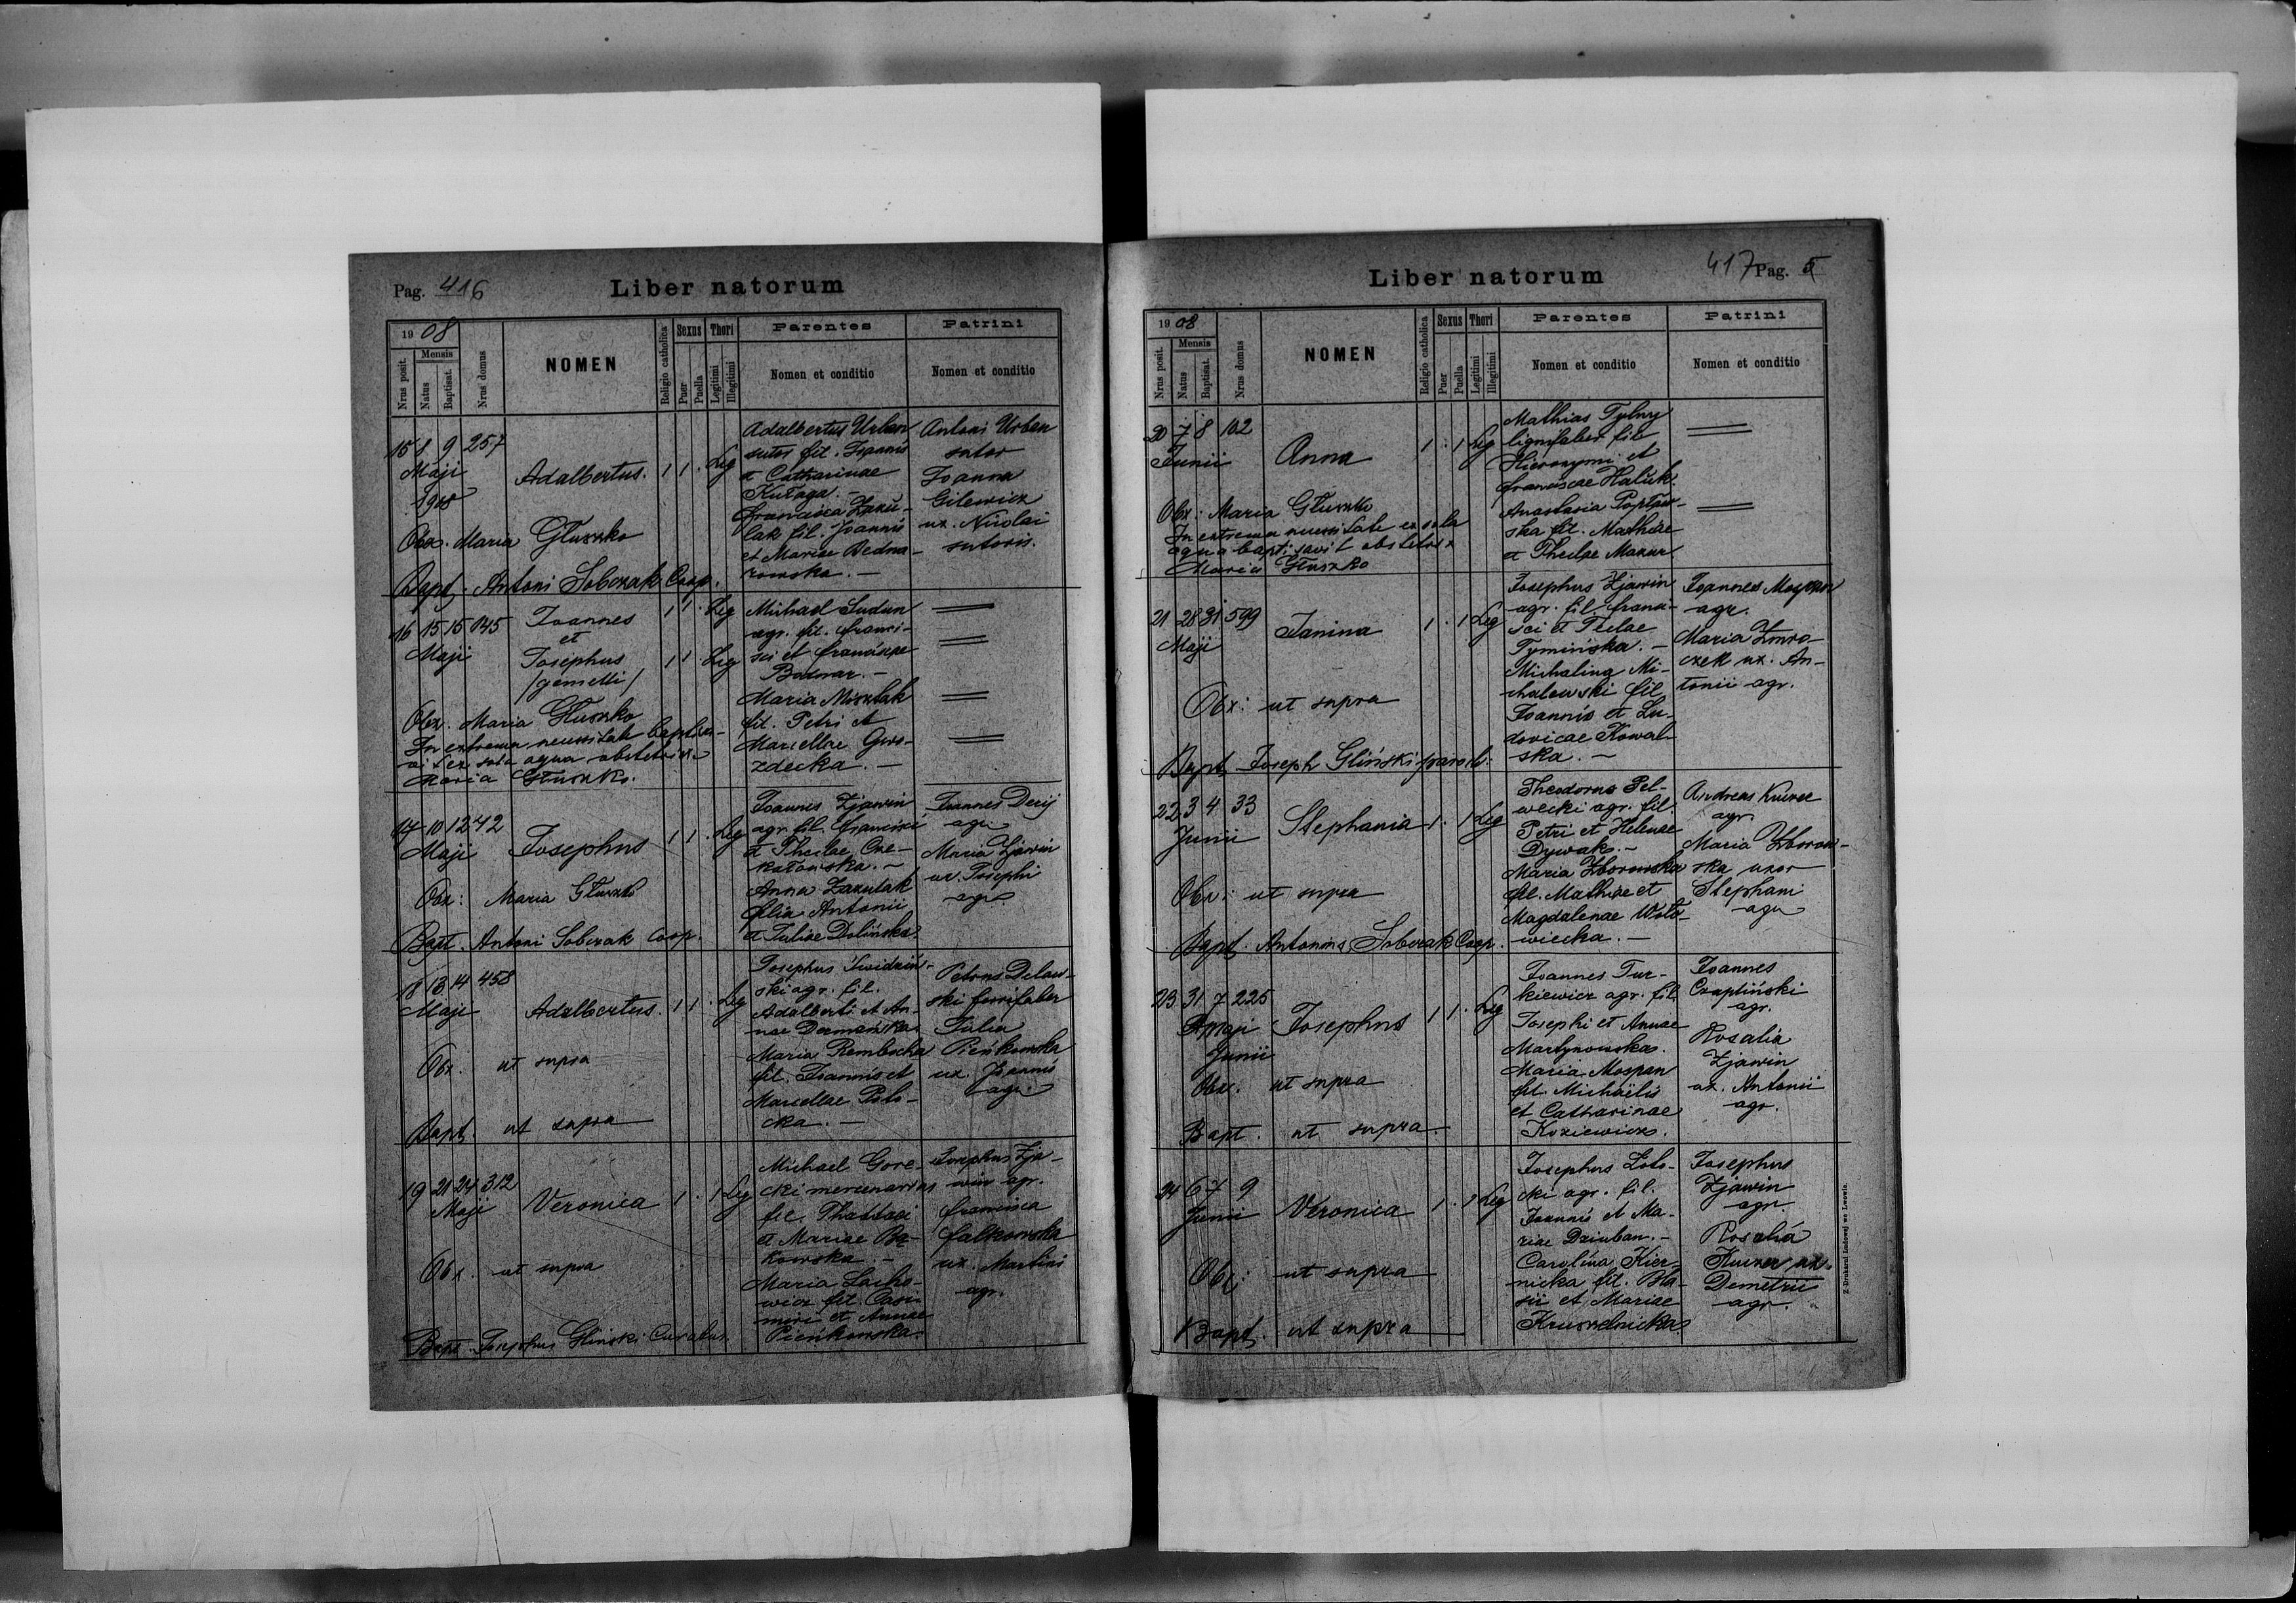 Pag. 416
Liber natorum
1908
Nrus posit.
Mensis
Natus
Baptisat.
Nrus domus
NOMEN
Religio catholica
Sexus
Puer
Puella
Thori
Legitimi
Illegitimi
Parentes
Nomen et conditio
Patrini
Nomen et conditio
15 8 9 257
Maji
1908
Adalbertus. 1 1. Leg
Obx. Maria Głuszko
Bapt. Antoni Sobczak Coop.
Adalbertus Urban
sutor fil. Joannis
et Catharinae
Kułaga. -
Francisca Zazu-
lak fil. Joannis
et Mariae Bedna-
rowska. -
Antoni Urban
sutor
Joanna
Gilewicz
ux. Nicolai
sutoris.
16 15 15 145
Maji
Joannes 1 1. Leg
et
Josephus 1 1. Leg
/gemelli/
Obx. Maria Głuszko
In extrema necessitate baptisa-
vit ex sola aqua obstetrix
Maria Głuszko.
Michael Sudun
agr. fil. Franci-
sci et Franciscae
Bodnar. -
Maria Misztak
fil. Petri et
Marcellae Gwo-
zdecka. -
17 10 12 42
Maji
Josephus 1 1. Leg
Obx: Maria Głuszko
Bapt. Antoni Sobczak Coop.
Joannes Zjawin
agr. fil. Francisci
et Theclae Cze-
kałowska. -
Anna Zazulak
filia Antonii
et Juliae Dolińska
Joannes Derij
agr.
Maria Zjawin
ux. Josephi
agr.
18 13 14 458
Maji
Adalbertus. 1 1. Leg
Obx. ut supra
Bapt. ut supra
Josephus Świdziń-
ski agr. fil.
Adalberti et An-
nae Dermańska
Maria Rembocha
fil. Joannis et
Marcellae Poto-
cka. -
Petrus Delaw-
ski ferrifaber
Julia
Pieńkowska
ux. Joannis
agr.
19 21 24 312
Maji
Veronica 1. 1 Leg
Obx. ut supra
Bapt. Josephus Gliński Curatus.
Michael Gore-
cki mercenarius
fil. Thaddaei
et Mariae Bą-
kowska -
Maria Lacho-
wicz fil. Casi-
miri et Annae
Pieńkowska.
Josephus Zja-
win agr.
Francisca
Falkowska
ux. Martini
agr.
417 Pag. 5
Liber natorum
1908
Nrus posit.
Mensis
Natus
Baptisat.
Nrus domus
NOMEN
Religio catholica
Sexus
Puer
Puella
Thori
Legitimi
Illegitimi
Parentes
Nomen et conditio
Patrini
Nomen et conditio
20 7 8 102
Junii
Anna 1. 1 Leg
Obx: Maria Głuszko
In extrema necessitate ex sola
aqua baptisavit obstetrix
Maria Głuszko
Mathias Tylny
lignifaber fil.
Hieronymi et
Franciscae Haluk
Anastasia Popław-
ska fil. Mathiae
et Theclae Mazur
21 28 31 599
Maji
Janina 1. 1 Leg
Obx: ut supra
Bapt. Joseph Gliński paroch.
Josephus Zjawin
agr. fil. Franci-
sci et Theclae
Tymińska. -
Michalina Mi-
chalewski fil.
Joannis et Lu-
dovicae Kowal-
ska. -
Joannes Mospan
agr.
Maria
czek ux. An-
tonii agr.
22 3 4 33
Junii
Stephania 1. 1 Leg
Obx: ut supra
Bapt. Antonius Sobczak Coop.
Theodorus Pel-
wecki agr. fil.
Petri et Helenae
Dywak. -
Maria Zborowska
fil. Mathiae et
Magdalenae Woło-
wiecka. -
Andreas
agr.
Maria Zborow-
ska uxor
Stephani
agr.
23 31 7 225
Maji
Junii
Josephus 1 1. Leg
Obx. ut supra
Bapt. ut supra
Joannes Tur-
kiewicz agr. fil.
Josephi et Annae
Martynowska.
Maria Mospan
fil. Michaëlis
et Catharinae
Koziewicz.
Joannes
Czapliński
agr.
Rosalia
Zjawin
ux. Antonii
agr.
24 6 7 9
Junii
Veronica 1. 1 Leg
Obx: ut supra
Bapt. ut supra
Josephus Łoto-
cki agr. fil.
Joannis et Ma-
riae Dziuban. -
Carolina Kier-
nicka fil. Bla-
sii et Mariae
Kruszelnicka
Josephus
Zjawin
agr.
Rosalia
ux.
Demetrii
agr.
Z Drukarni Ludowej we Lwowie.